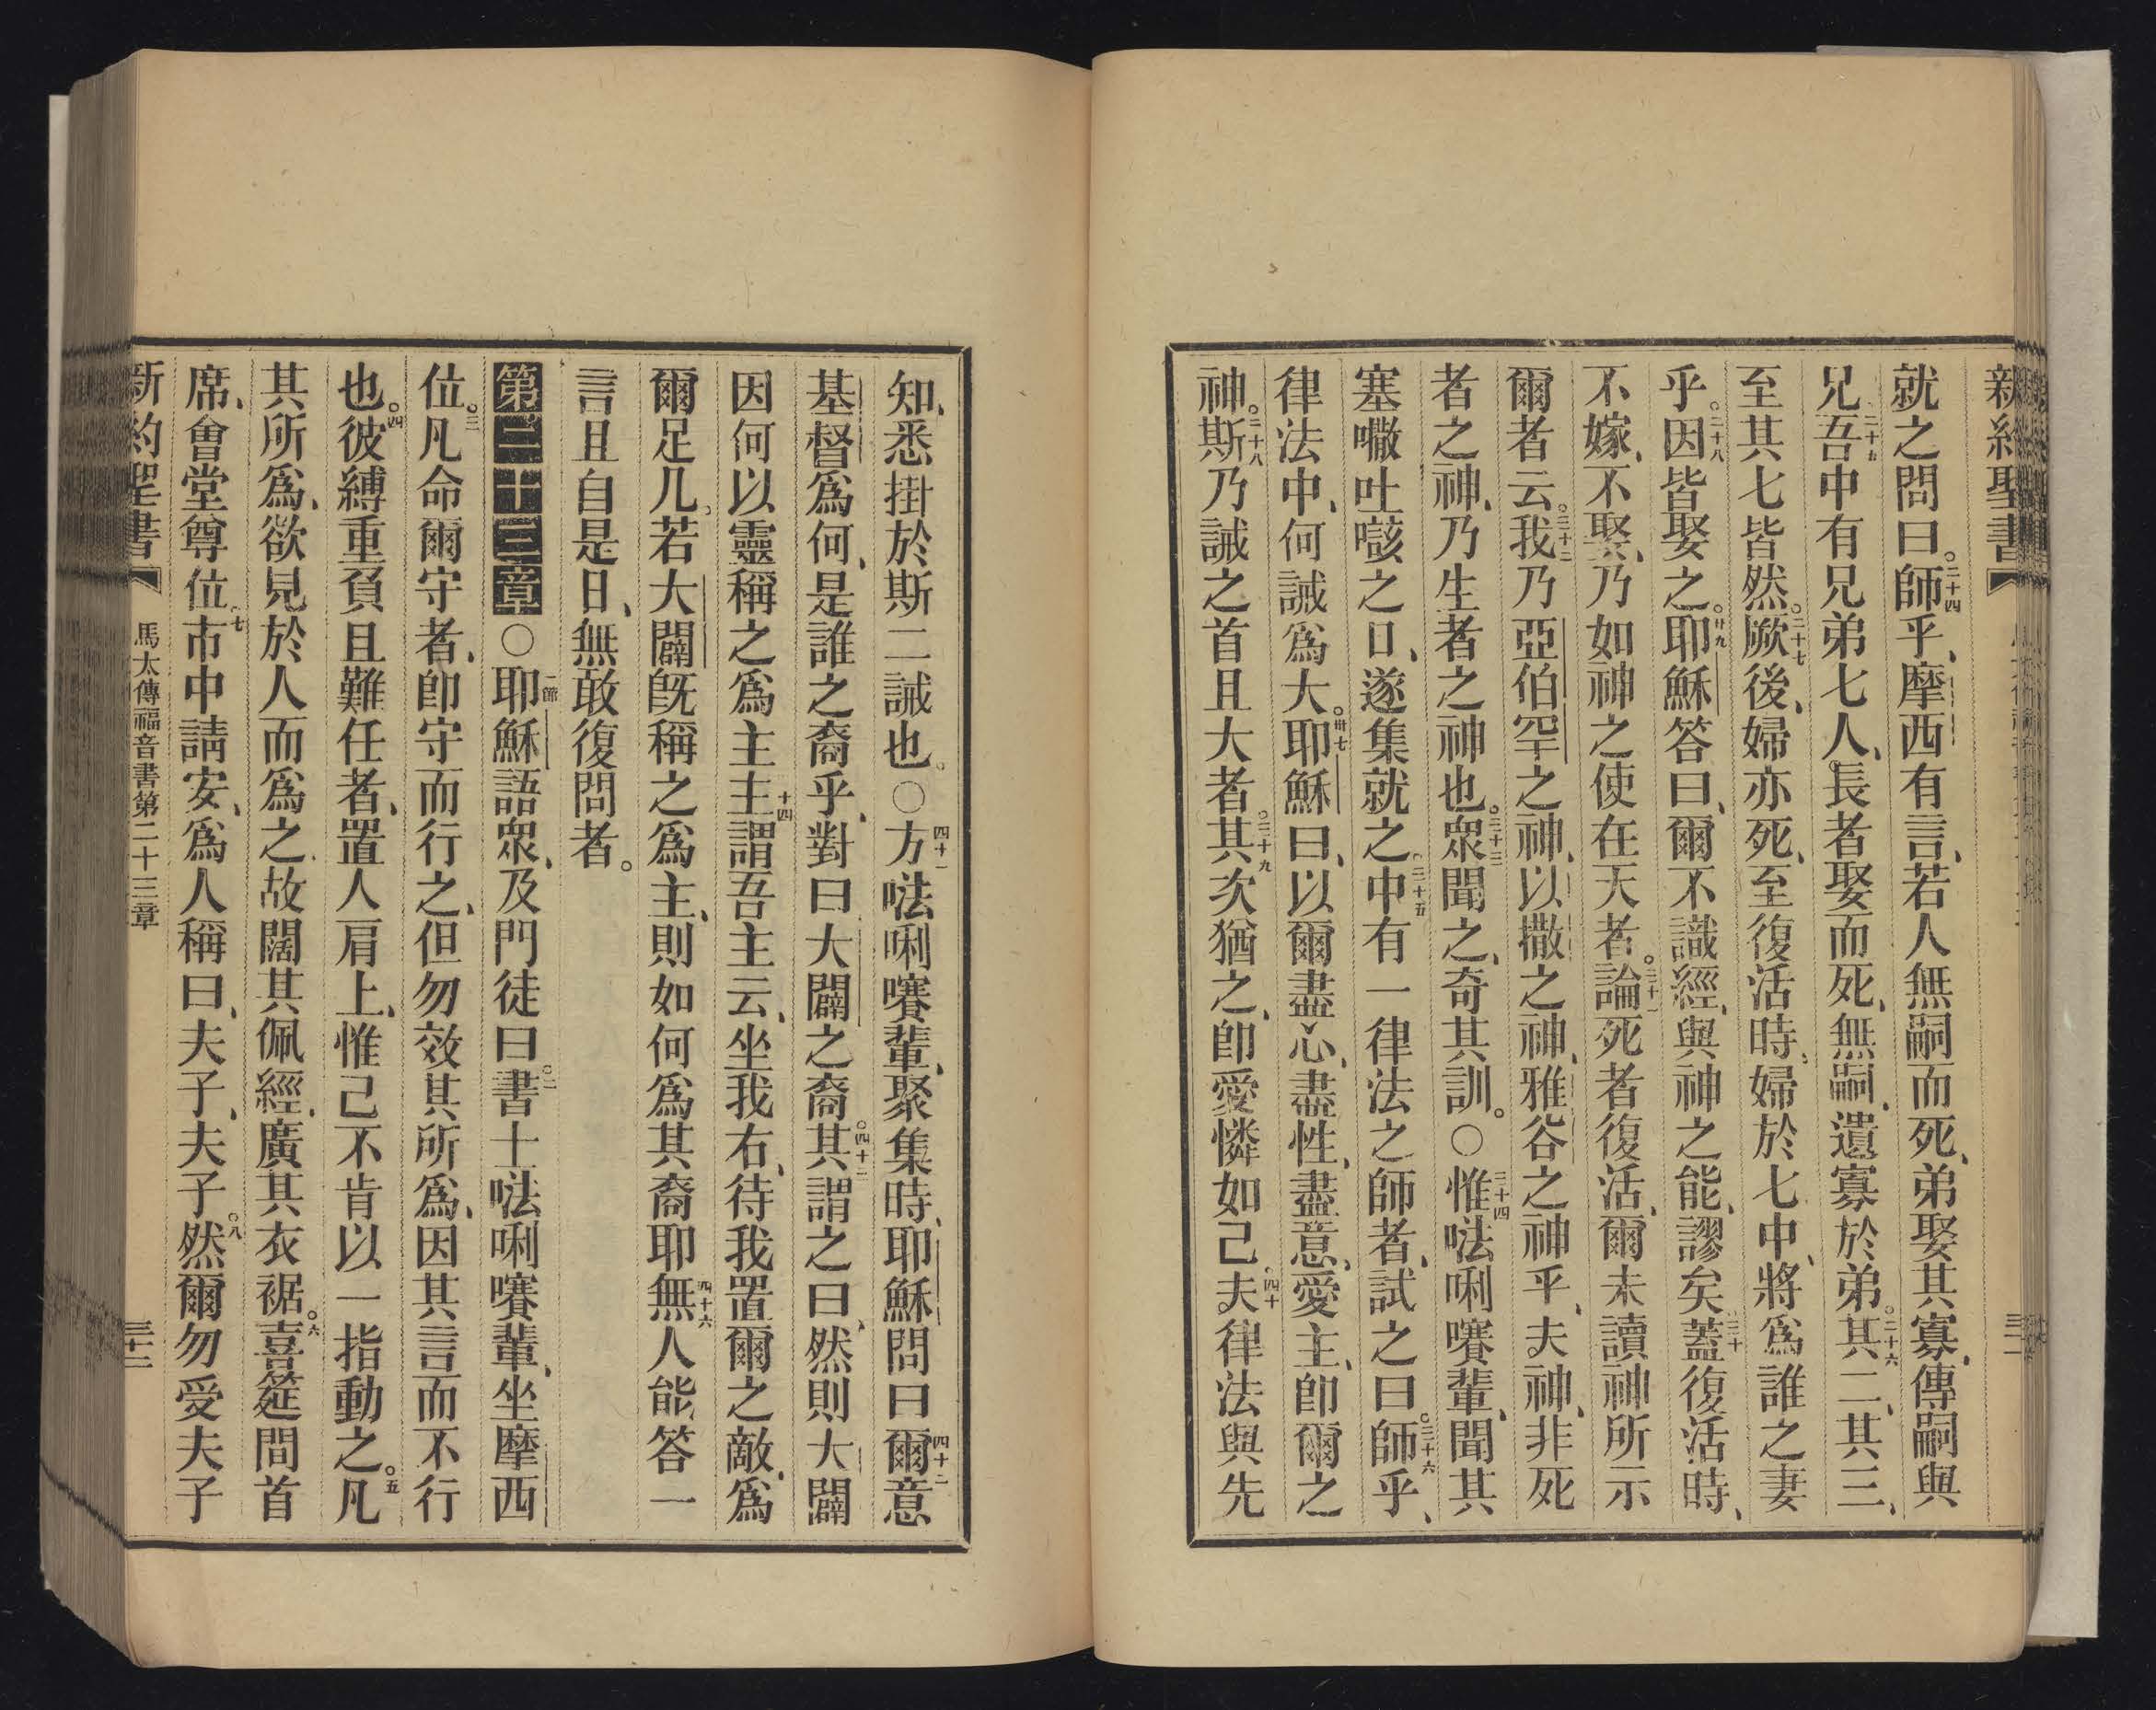 新約聖書
就之問曰。二十四師乎、摩西有言、若人無嗣而死、弟娶其寡、傳嗣與
兄二十五吾中有兄弟七人、長者娶而死、無嗣、遺寡於弟。二十六其二、其三、
至其七皆然。二十七厥後、婦亦死、至復活時、婦於七中、將爲誰之妻
乎。二十八因皆娶之。廿九耶穌答曰、爾不識經、與神之能、謬矣三十蓋復活時、
不嫁、不娶、乃如神之使在天者。三十一論死者復活、爾未讀神所示
爾者云。三十二我乃亞伯罕之神、以撒之神、雅谷之神乎、夫神、非死
者之神、乃生者之神也。三十三衆聞之、奇其訓。○三十四惟𠵽唎㘔輩、聞其
塞㘔吐嘅之口、遂集就之。三十五中有一律法之師者、試之曰。三十六師乎、
律法中、何誡爲大。卅七耶穌曰、以爾盡心、盡性、盡意、愛主、卽爾之
神。三十八斯乃誡之首且大者。三十九其次猶之、卽愛憐如己。四十夫律法與先
知、悉掛於斯二誡也。○四十一方𠵽唎㘔輩、聚集時、耶穌問曰四十二爾意
基督爲何、是誰之裔乎、對曰大闢之裔。四十三其謂之曰、然則大闢
因何以靈稱之爲主十四主謂吾主云、坐我右、待我置爾之敵、爲
爾足几。若大闢旣稱之爲主、則如何爲其裔耶四十六無人能答一
言且自是日、無敢復問者。
第二十三章○一節耶穌語衆、及門徒曰。二書士𠵽唎㘔輩、坐摩西
位。三凡命爾守者、卽守而行之、但勿效其所爲、因其言而不行
也。四彼縛重負且難任者、置人肩上、惟己不肯以一指動之。五凡
其所爲、欲見於人而爲之、故闊其佩經、廣其衣裾。六喜筵間首
席、會堂尊位。七市中請安、爲人稱曰、夫子、夫子。八然爾勿受夫子
新約聖書 馬太傳福音書第二十三章 三十二